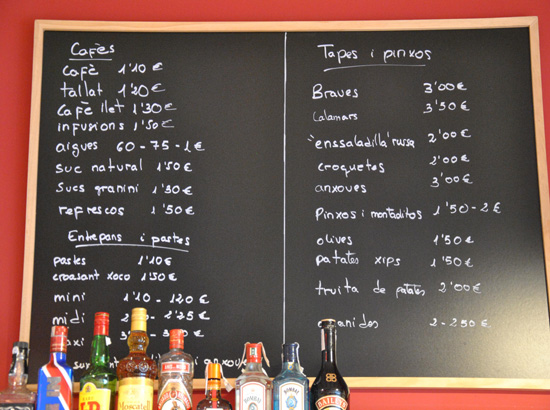 Cafès
Cafè 1'10 €
tallat 1'20 €
Cafè llet 1'30 €
infusions 1'50 €
aigues 60 - 75 - 1 €
suc natural 1'50 €
Sucs granini 1'50 €
refrescos 1'50 €
Entrepans i pastes
pastes 1'10 €
croasant xoco 1'50 €
mini 1'10 - 120 €
midi
Tapes i pinxos
Braves 3'00 €
Calamars 3'50 €
enssaladilla russa 2'00 €
croquetes 2'00 €
anxoves 3'00 €
Pinxos i montaditos 1'50 - 2 €
olives 1'50 €
patates xips 1'50 €
truita de patates 2'00 €
2 - 250 €
J&B
Moscatell
BOMBAY
BOMBAY
BAILEYS